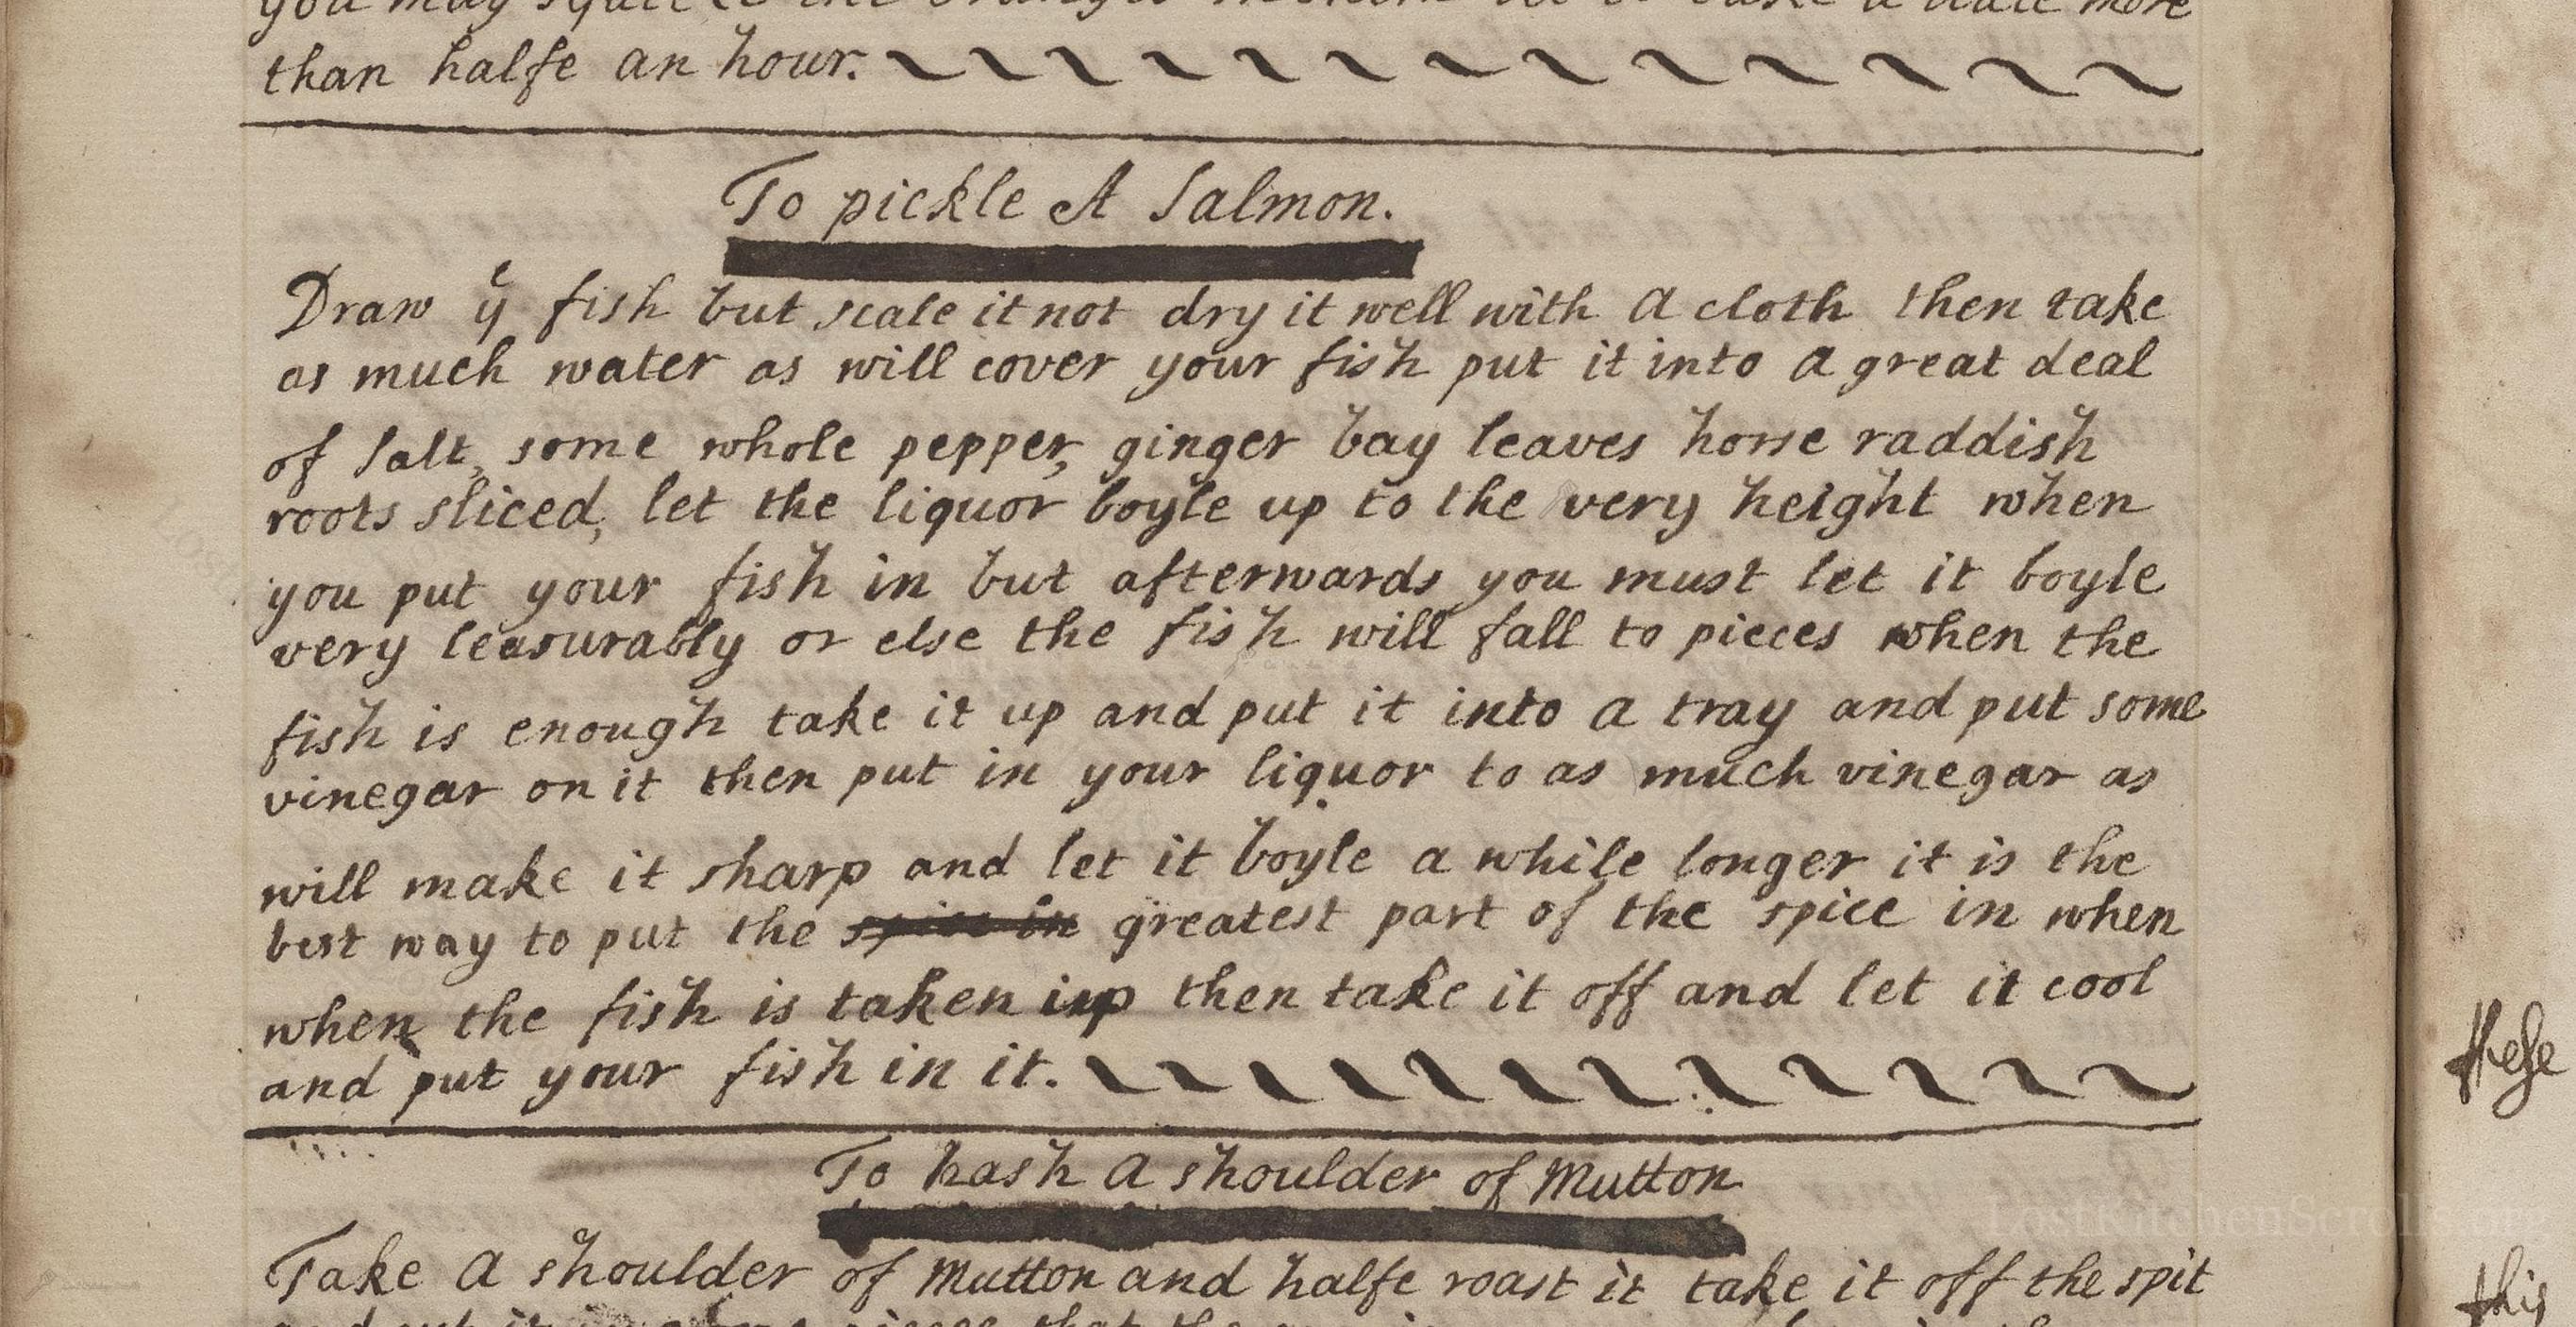 you may squeeze the
than halfe an hour.
To pickle A Salmon.
Draw yͤ fish but scale it not dry it well with A cloth then take
as much water as will cover your fish put it into A great deal
of Salt, some whole pepper, ginger bay leaves horse raddish
roots sliced, let the liquor boyle up to the very height when
you put your fish in but afterwards you must let it boyle
very leasurably or else the fish will fall to pieces when the
fish is enough take it up and put it into a tray and put some
vinegar on it then put in your liquor to as much vinegar as
will make it sharp and let it boyle a while longer it is the
best way to put the spice in greatest part of the spice in when
when the fish is taken up then take it off and let it cool
and put your fish in it.
To hash A shoulder of Mutton
Take A shoulder of Mutton and halfe roast it take it off the spit
these
this
LostKitchenScrolls